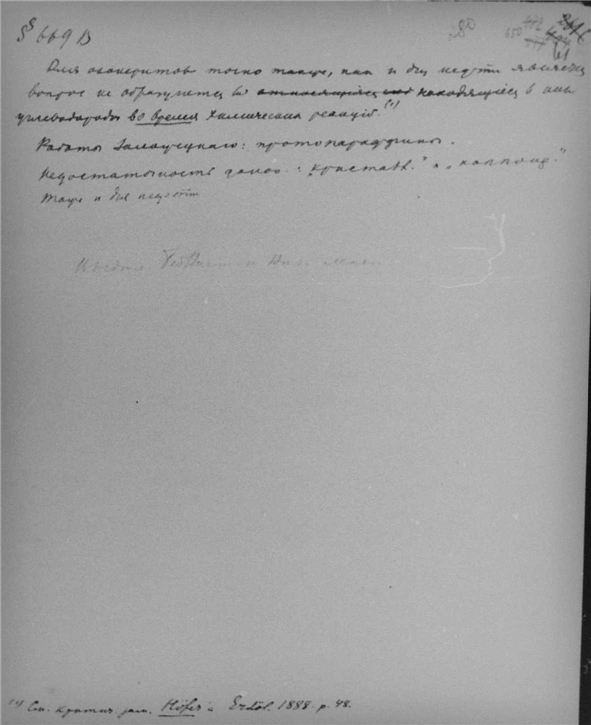 § 669 В
280
650
Для озокеритов точно также, как и для нефти является
вопрос не образуются ли относящиеся находящиеся в них
углеводороды во время химических реакций.(1)
Работы Залозецкого: протопараффины.
Недостаточность данн.: „кристалл." и „коллоид."
также и для нефти
(1) См. критич. зам. Höfer'а Erdöl. 1888. p. 48.